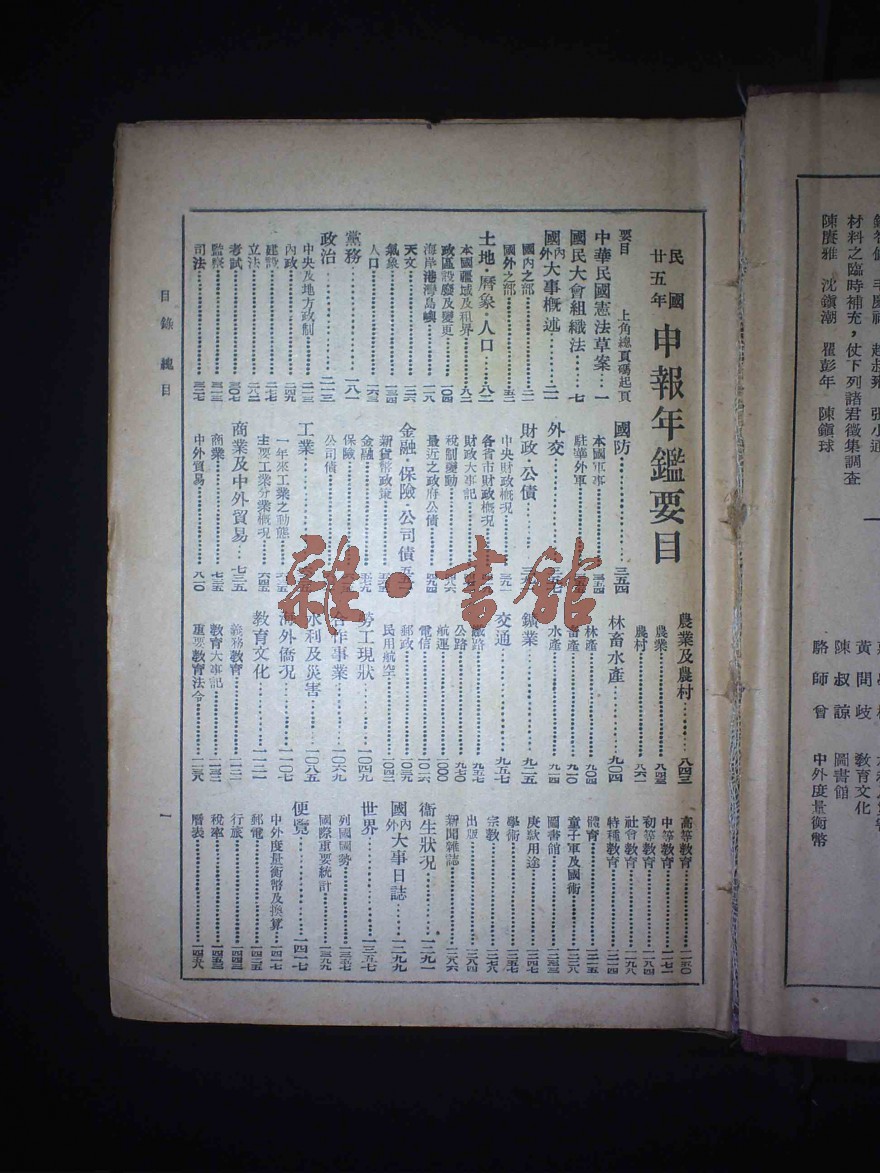 民國廿五年 申報年鑑要目
要目 上角總頁碼起頁
中華民國憲法草案…一
國民大會組織法…七
國內外大事概述…二一
國內之部…二一
國外之部…五二
土地·曆象·人口…八二
本國疆域及租界…八二
政區設廢及變更…一〇四
海岸港灣島嶼…一二八
天文
氣象…一三四
人口…一六三
黨務…一八一
政治…二一三
中央及地方政制…二一三
內政…二四九
建設
立法…二八二
考試…三〇七
監察
司法…三一七
國防…三五四
本國軍事…三五四
駐華外軍
外交
財政·公債
中央財政概況
各省市財政概況
財政大事記
稅制變動
最近之政府公債…四九四
金融·保險·公司債
新貨幣政策
金融
保險
公司債
工業
一年來工業之動態
主要工業分業概況…六四五
商業及中外貿易…七三五
商業…七三五
中外貿易…八一〇
農業及農村…八四三
農業…八四三
農村…八六二
林畜水產…九〇四
林產…九〇四
畜產…九一〇
水產…九一四
鑛業…九二五
交通…九五七
鐵路…九五七
公路…九七〇
航運…一〇〇〇
電信…一〇一六
郵政…一〇二九
民用航空
勞工現狀…一〇四九
合作事業…一〇六九
水利及災害…一〇八五
海外僑況…一一〇七
教育文化…一一二一
義務教育…一一二一
教育大事記…一一三二
重要教育法令…一一三八
高等教育…一一五〇
中等教育…一一七一
初等教育…一一八四
社會教育…一一九八
特種教育…一二一四
體育…一二一五
童子軍及國術…一二二八
圖書館…一二三三
庚款用途…一二四七
學術…一二五七
宗教…一二七六
出版…一二八四
新聞雜誌…一二八六
衞生狀況…一二九一
國內外大事日誌…一二九九
世界…一三五七
列國國勢…一三五七
國際重要統計…一三九九
便覽…一四一七
中外度量衡幣及換算…一四一七
郵電…一四三五
行旅…一四四三
稅率…一四五三
曆表…一四五八
目錄 總目
一
材料之臨時補充，仗下列諸君徵集調查
陳賡雅 沈鎭潮 瞿彭年 陳鎭球
黃問岐 教育文化
陳叔諒 圖書館
駱師曾 中外度量衡幣
雜·書館